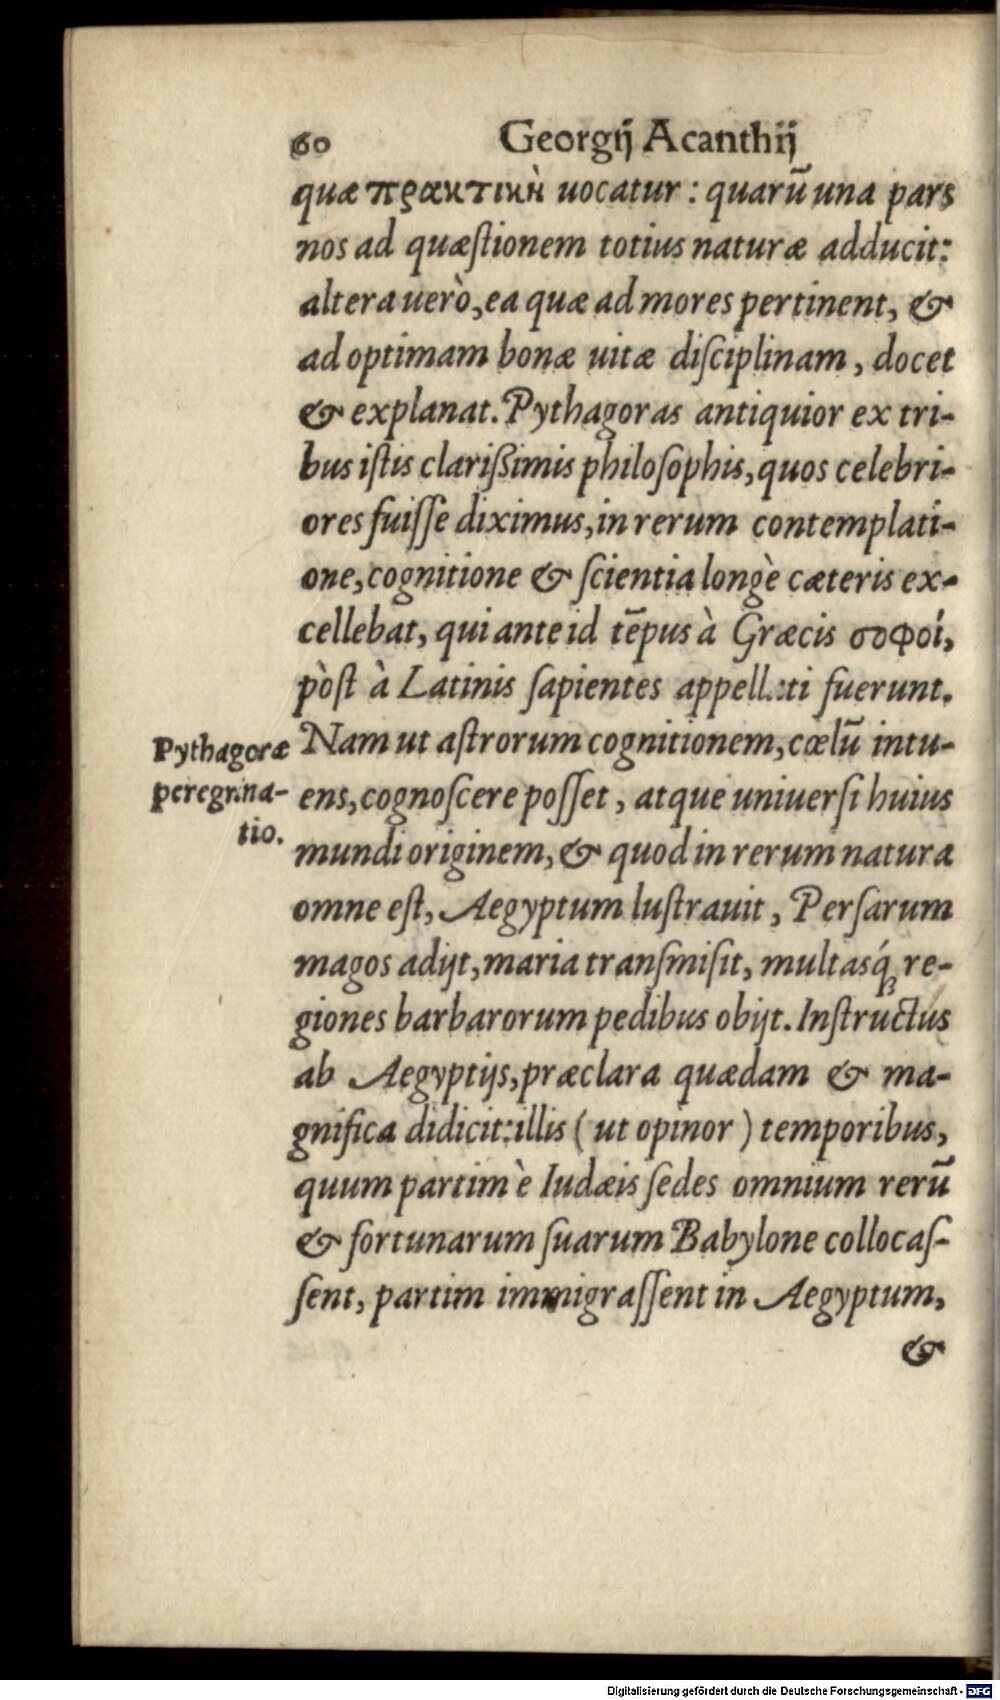 60 Georgij Acanthij
quæ πρακτικὴ uocatur: quarū una pars
nos ad quæſtionem totius naturæ adducit:
altera uerò, ea quæ ad mores pertinent, &
ad optimam bonæ uitæ diſciplinam, docet
& explanat. Pythagoras antiquior ex tri-
bus iſtis clarißimis philoſophis, quos celebri-
ores fuiſſe diximus, in rerum contemplati-
one, cognitione & ſcientia longè cæteris ex-
cellebat, qui ante id tēpus à Græcis σοφοί,
pòſt à Latinis ſapientes appellati fuerunt.
Pythagoræ
peregrina-
tio.
Nam ut aſtrorum cognitionem, cœlū intu-
ens, cognoſcere poſſet, atque uniuerſi huius
mundi originem, & quod in rerum natura
omne eſt, Aegyptum luſtrauit, Perſarum
magos adijt, maria tranſmiſit, multasq́; re-
giones barbarorum pedibus obijt. Inſtructus
ab Aegyptijs, præclara quædam & ma-
gnifica didicit: illis (ut opinor) temporibus,
quum partim è Iudæis ſedes omnium rerū
& fortunarum ſuarum Babylone collocaſ-
ſent, partim immigraſſent in Aegyptum,
&
Digitalisierung gefördert durch die Deutsche Forschungsgemeinschaft - DFG